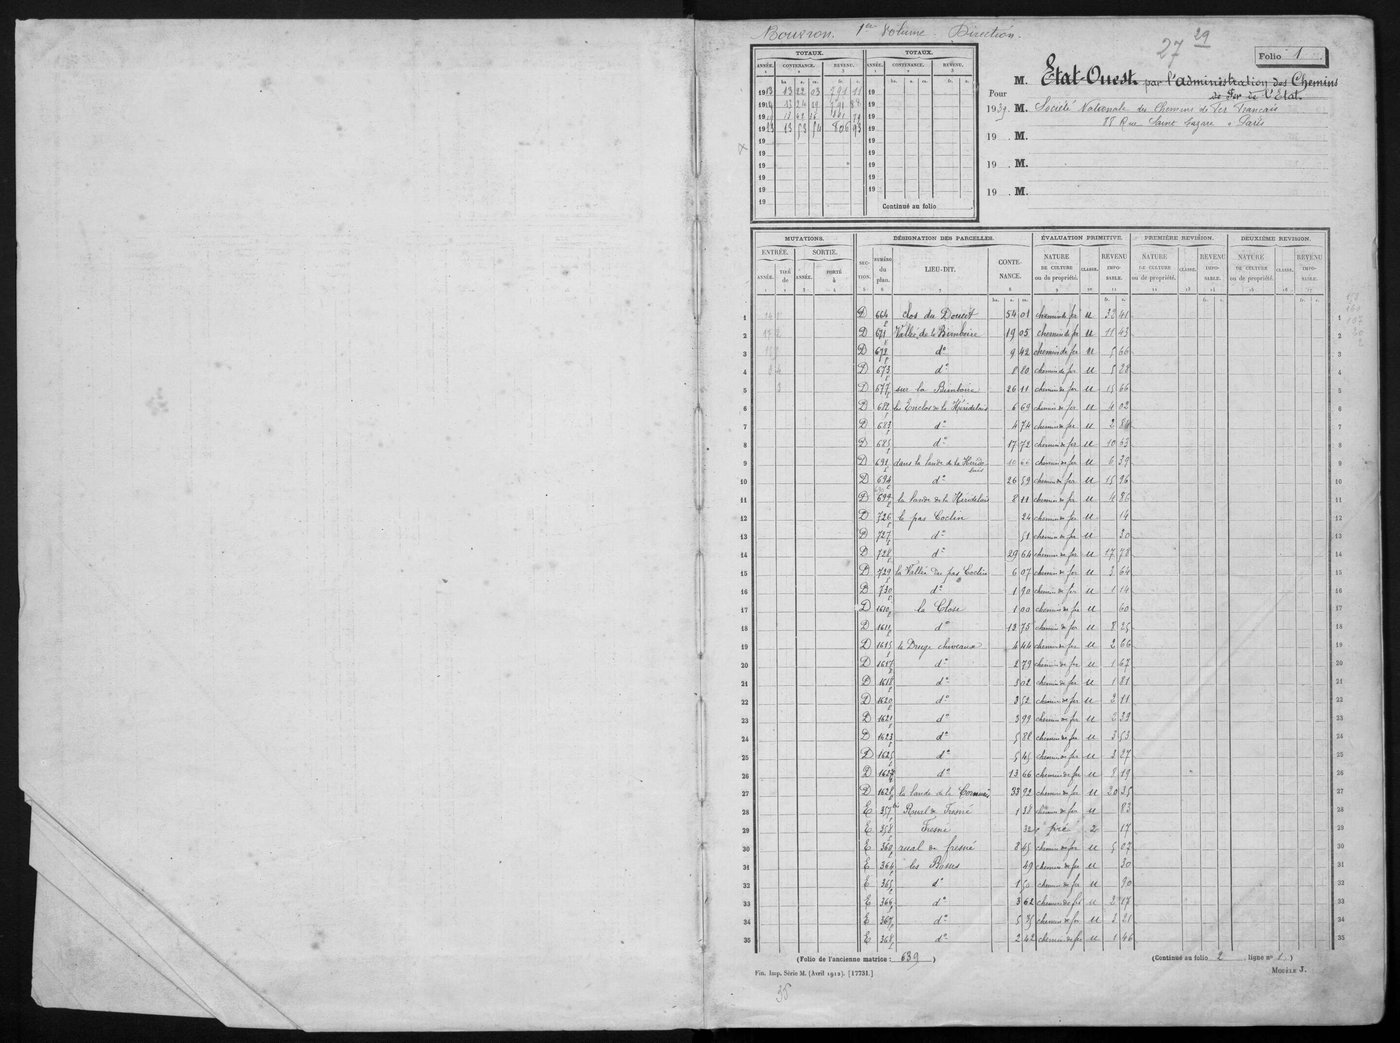 Bourron. 1er Volume. Direction.
27 29
Folio 1
TOTAUX. TOTAUX.
ANNÉE. CONTENANCE. REVENU. ANNÉE. CONTENANCE. REVENU.
1 2 3 1 2 3
ha. a. c. fr. c. ha. a. c. fr. c.
1913 13 22 03 791 11 19
1914 13 24 19
19
1923 13 53 54 806 93 19
19 19
19 19
19 19
19 19
19 19
19 Continué au folio
M. Etat-Ouest par l'administration des Chemins
de Fer de l'Etat.
Pour
1939 M. Société Nationale des Chemins de Fer Français
88 Rue Saint Lazare à Paris
19 M.
19 M.
19 M.
MUTATIONS. DÉSIGNATION DES PARCELLES. ÉVALUATION PRIMITIVE. PREMIÈRE REVISION. DEUXIÈME REVISION.
ENTRÉE. SORTIE. SECTION. NUMÉRO du plan. LIEU-DIT. CONTENANCE. NATURE DE CULTURE ou de propriété. CLASSE. REVENU IMPOSABLE. NATURE DE CULTURE ou de propriété. CLASSE. REVENU IMPOSABLE. NATURE DE CULTURE ou de propriété. CLASSE. REVENU IMPOSABLE.
ANNÉE. TIRÉ de ANNÉE. PORTÉ à
1 D 664 clos du Doucit 54 01 chemin de fer u 33 41 1
2 D 671 Vallée de la Bimboire 19 05 chemin de fer u 11 43 2
3 D 672 do 9 42 chemin de fer u 5 66 3
4 D 673 do 8 80 chemin de fer u 5 28 4
5 D 677 sur la Bimboire 26 11 chemin de fer u 15 66 5
6 D 682 les Enclos de la Héridelais 6 69 chemin de fer u 4 02 6
7 D 683 do 4 74 chemin de fer u 2 84 7
8 D 685 do 17 72 chemin de fer u 10 63 8
9 D 691 dans la lande de la Héride lais 10 66 chemin de fer u 6 39 9
10 D 694 do 26 59 chemin de fer u 15 96 10
11 D 699 la lande de la Héridelais 8 11 chemin de fer u 4 86 11
12 D 726 le pas Coclin 24 chemin de fer u 14 12
13 D 727 do 51 chemin de fer u 30 13
14 D 728 do 29 64 chemin de fer u 17 78 14
15 D 729 la Vallée du pas Coclin 6 07 chemin de fer u 3 64 15
16 D 730 do 1 90 chemin de fer u 1 14 16
17 D 1610 la Close 1 00 chemin de fer u 60 17
18 D 1611 do 13 75 chemin de fer u 8 25 18
19 D 1615 le Druge chiveaux 4 44 chemin de fer u 2 66 19
20 D 1617 do 2 79 chemin de fer u 1 67 20
21 D 1618 do 3 02 chemin de fer u 1 81 21
22 D 1620 do 3 52 chemin de fer u 2 11 22
23 D 1621 do 3 99 chemin de fer u 2 39 23
24 D 1623 do 5 88 chemin de fer u 3 53 24
25 D 1625 do 5 45 chemin de fer u 3 27 25
26 D 1627 do 13 66 chemin de fer u 8 19 26
27 D 1628 la lande de la 33 92 chemin de fer u 20 35 27
28 E 357 Rueil de Fresné 1 38 chemin de fer u 83 28
29 E 358 Fresné 32 pré 2 17 29
30 E 360 rual de fresné 8 45 chemin de fer u 5 07 30
31 E 364 les Basses 49 chemin de fer u 30 31
32 E 365 do 1 50 chemin de fer u 90 32
33 E 366 do 3 62 chemin de fer u 2 17 33
34 E 367 do 5 35 chemin de fer u 3 21 34
35 E 368 do 2 42 chemin de fer u 1 46 35
(Folio de l'ancienne matrice : 639 ) (Continué au folio 2 ligne no 1 )
Fin. Imp. Série M. (Avril 1912). [17731.] MODÈLE 3.
35